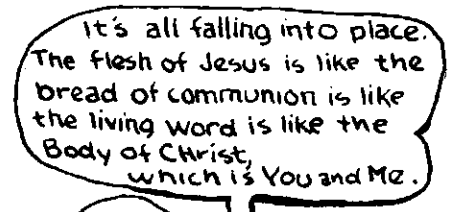 It's all falling into place.
The flesh of Jesus is like the
bread of communion is like
the living word is like the
Body of CHrist,
which is You and Me.